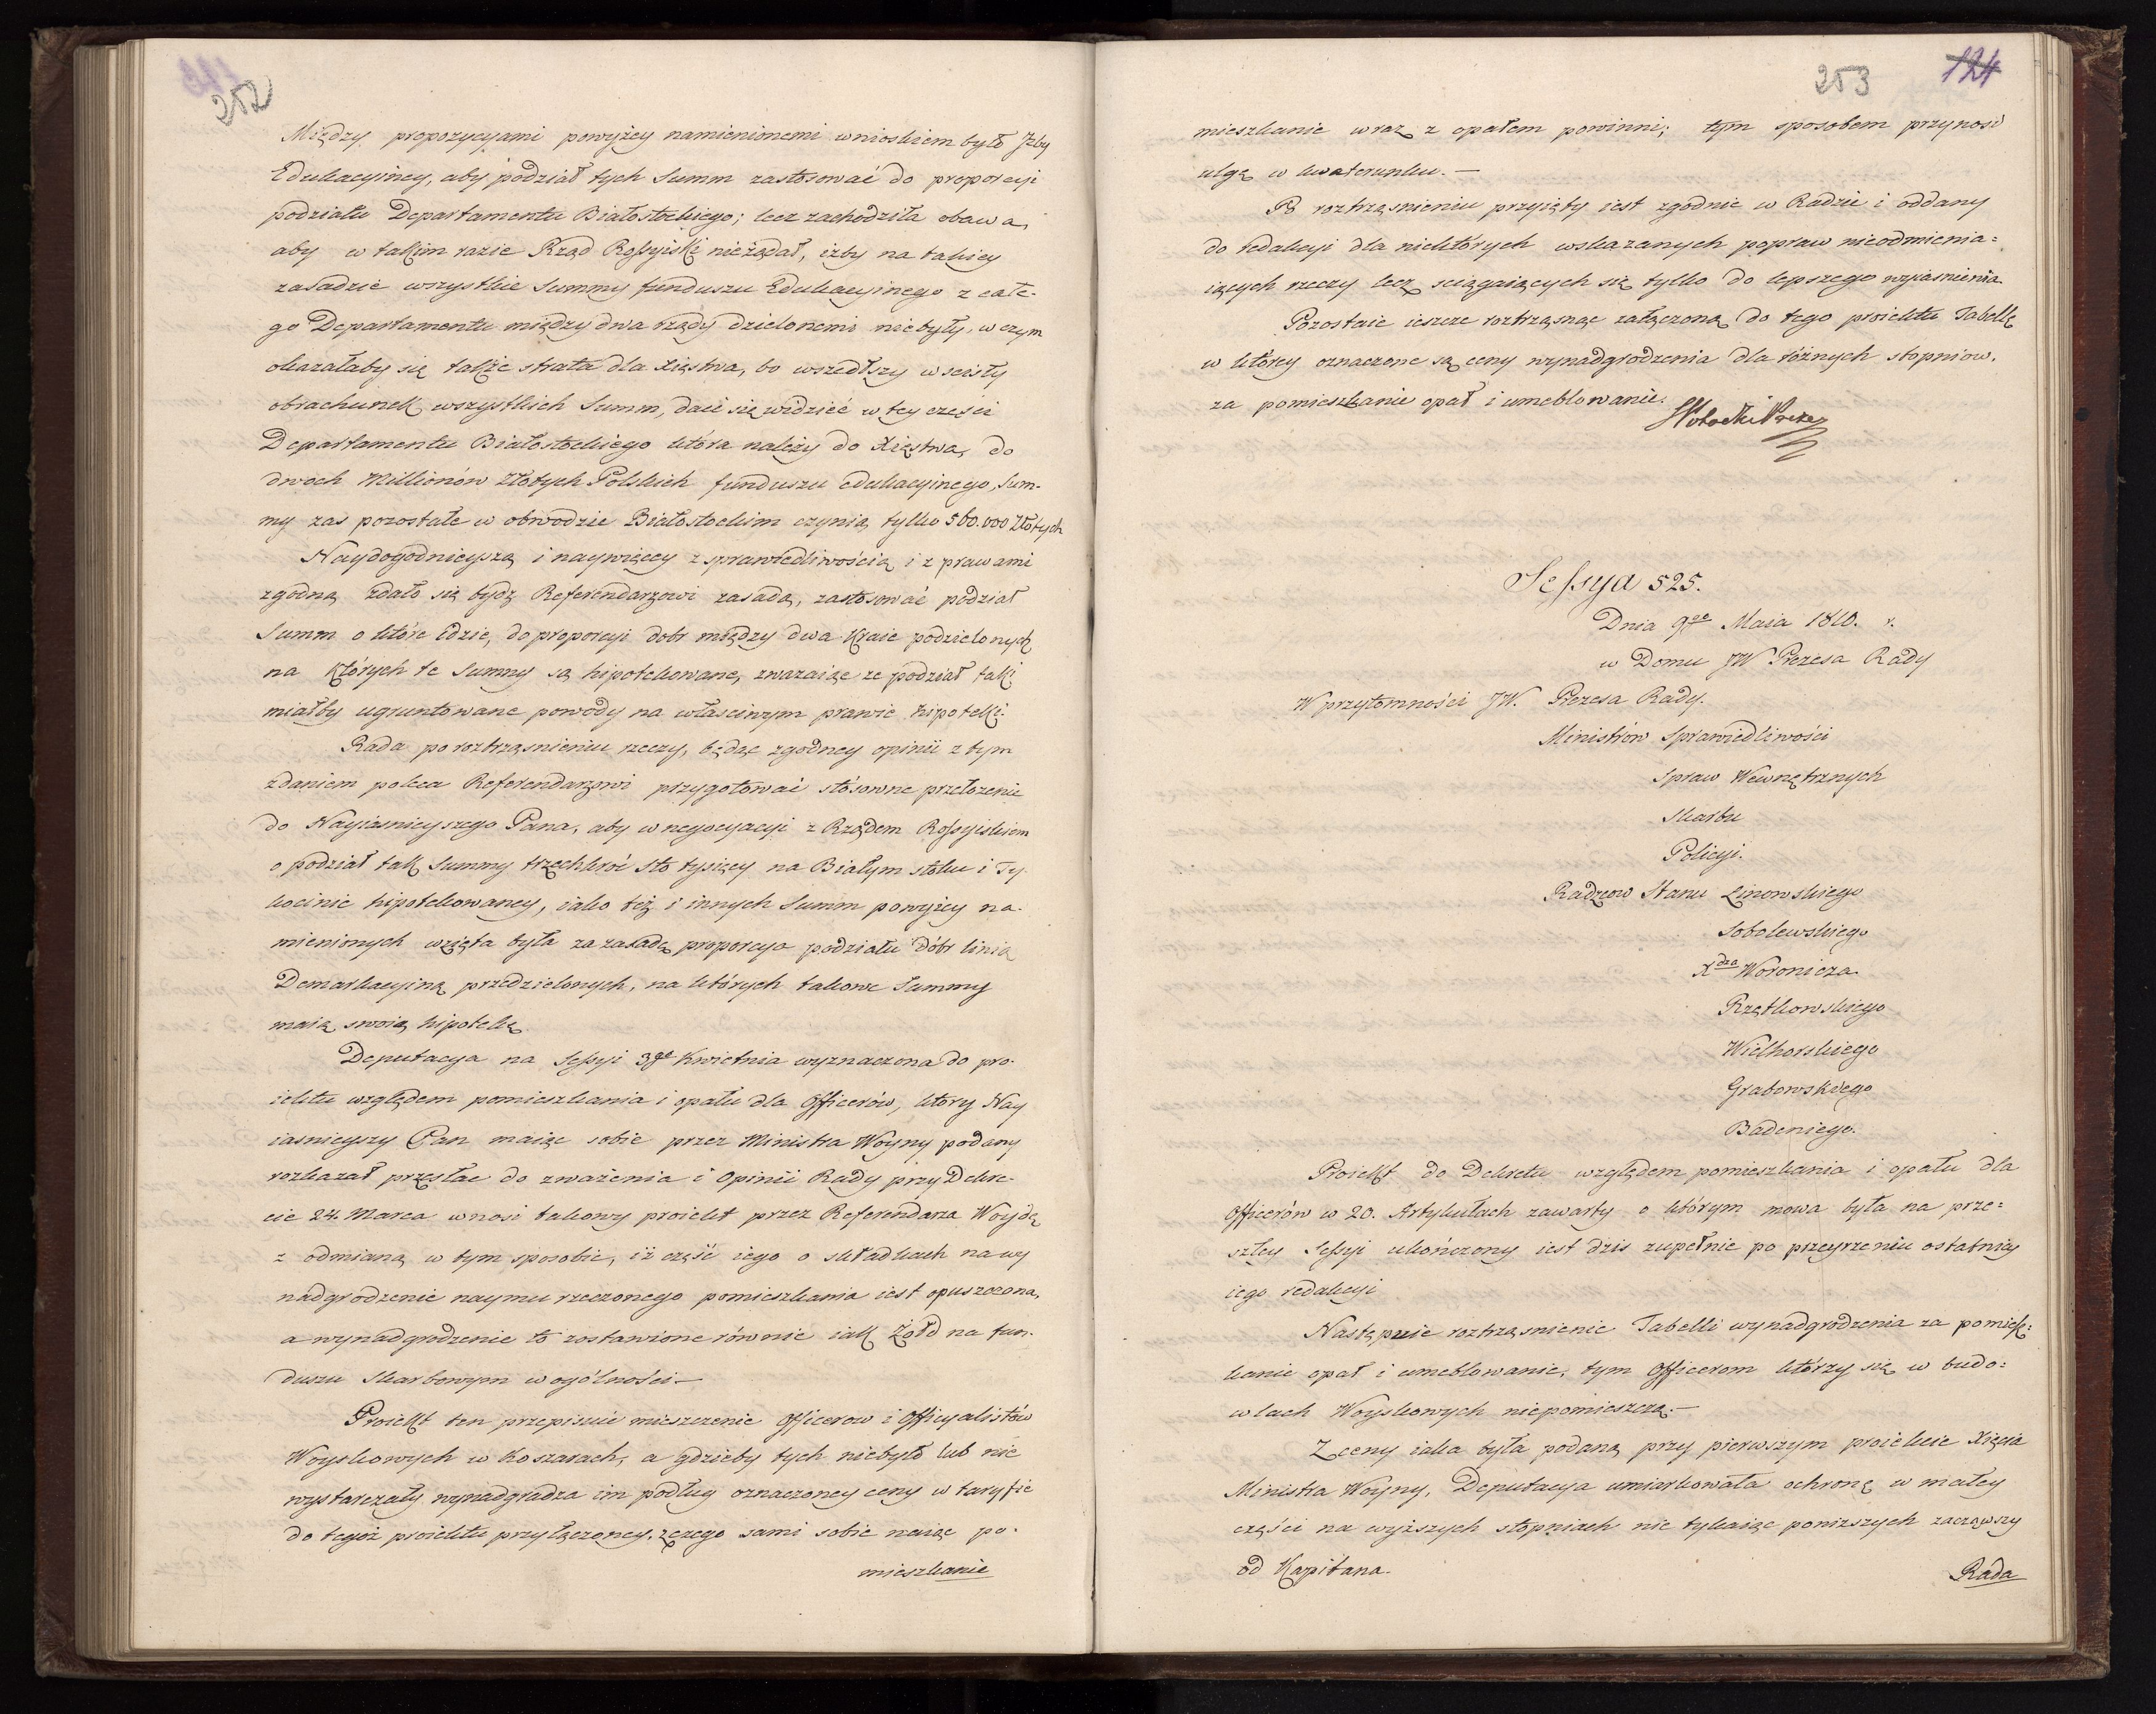 252
Między propozycyami powyżey namienionemi wnioskiem było Jzby
Edukacyiney, aby podział tych Summ zastosować do proporcyi
podziału Departamentu Białostockiego; lecz zachodziła obawa,
aby w takim razie Rząd Rossyiski nieżądał, iżby na takiey
zasadzie wszystkie Summy funduszu Edukacyinego z całe-
go Departamentu między dwa rządy dzielonemi niebyły, w czym
okazałaby się także strata dla Xięstwa, bo wszedłszy w scisły
obrachunek wszystkich Summ, daie się widzieć w tey części
Departamentu Białostockiego która należy do Xięstwa, do
dwoch Millionów Złotych Polskich funduszu edukacyinego, Sum-
my zas pozostałe w obwodzie Białostockim czynią tylko 560.000 Złotych
Naydogodnieyszą i naywięcey z sprawiedliwością i z prawami
zgodną zdało się bydź Referendarzowi zasadą, zastosować podział
Summ o które idzie, do proporcyi dobr między dwa Kraie podzielonych
na których te Summy są hipotekowane, zwazaiąc ze podział taki
miałby ugruntowane powody na właściwym prawie hipoteki.
Rada po roztrząsnieniu rzeczy, będąc zgodney opinii z tym
zdaniem poleca Referendarzowi przygotować stósowne przełozenie
do Nayiasnieyszego Pana, aby w negocyacyi z Rządem Rossyiskiem
o podział tak Summy trzechkroć sto tysięcy na Białym stoku i Ty-
kocinie hipotekowaney, iako też i innych Summ powyżey na-
mienionych wzięta była za zasadę proporcya podziału dóbr linią
Demarkacyiną przedzielonych, na których takowe Summy
maią swoią hipotekę
Deputacya na Sessyi 3go Kwietnia wyznaczona do pro-
iektu względem pomieszkania i opału dla Officerów, ktory Nay
iasnieyszy Pan maiąc sobie przez Ministra Woyny podany
rozkazał przesłac do zważenia i Opinii Rady przy Dekre-
cie 24. Marca wnosi takowy proiekt przez Referendarza Woydę
z odmianą w tym sposobie, iż część iego o składkach na wy
nadgrodzenie naymu rzeczonego pomieszkania iest opuszczona,
a wynadgrodzenie to zostawione równie iak Żołd na fun-
duszu Skarbowym w ogólności.—
Proiekt ten przepisuie mieszczenie Officerow i Officyalistów
Woyskowych w Koszarach, a gdzieby tych niebyło lub nie
wystarczały wynadgradza im podług oznaczoney ceny w taryfie
do tegoż proiektu przyłączoney, z czego sami sobie naiąc po-
mieszkanie
253
124
mieszkanie wraz z opałem powinni; tym sposobem przynosi
ulgę w kwaterunku.—
Po roztrząsnieniu przyięty iest zgodnie w Radzie i oddany
do redakcyi dla niektórych wskazanych popraw nieodmienia=
iących rzeczy lecz sciągaiących się tylko do lepszego wyiasnienia.
Pozostaie ieszcze roztrząsnąc załączoną do tego proiektu Tabellę
w którey oznaczone są ceny wynadgrodzenia dla różnych stopniow.
za pomieszkanie opał i umeblowanie.
Sessya 525.
Dnia 9go Maia 1810. r.
w Domu JW Prezesa Rady
W przytomności JW. Prezesa Rady.
Ministrów Sprawiedliwości
Spraw Wewnętrznych
Skarbu
Policyi.
Radzcow Stanu Linowskiego
Sobolewskiego
Xdza Woronicza
Rzętkowskiego
Wielhorskiego
Grabowskiego
Badeniego.
Proiekt do Dekretu względem pomieszkania i opału dla
Officerów w 20. Artykułach zawarty o którym mowa była na prze=
szłey Sessyi ukończony iest dzis zupełnie po przeyrzeniu ostatniey
iego redakcyi
Następuie roztrząsnienie Tabelli wynadgrodzenia za pomiesz=
kanie opał i umeblowanie, tym Officerom którzy się w budo=
wlach Woyskowych niepomieszczą.—
Z ceny iaka była podaną przy pierwszym proiekcie Xięcia
Ministra Woyny, Deputacya umiarkowała ochronę w małey
części na wyższych stopniach nie tykaiąc ponizszych zacząwszy
od Kapitana.
Rada